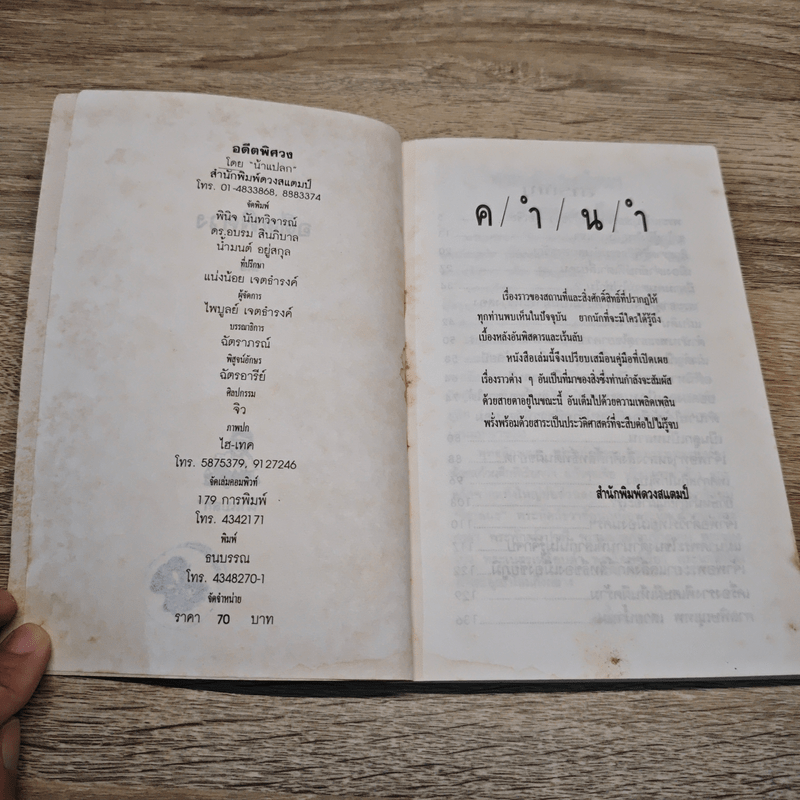 อดีตพิศวง
โดย "น้าแปลก"
สำนักพิมพ์ดวงสแตมป์
โทร. 01-4833868, 8883374
จัดพิมพ์
พินิจ นันทวิจารณ์
ดร.อบรม สินภิบาล
น้ำมนต์ อยู่สกุล
ที่ปรึกษา
แน่งน้อย เจตธำรงค์
ผู้จัดการ
ไพบูลย์ เจตธำรงค์
บรรณาธิการ
ฉัตราภรณ์
พิสูจน์อักษร
ฉัตรอารีย์
ศิลปกรรม
จิว
ภาพปก
ไฮ-เทค
โทร. 5875379, 9127246
จัดเล่มคอมพิวท์
179 การพิมพ์
โทร. 4342171
พิมพ์
ธนบรรณ
โทร. 4348270-1
จัดจำหน่าย
ราคา 70 บาท
ค/ำ/น/ำ
เรื่องราวของสถานที่และสิ่งศักดิ์สิทธิ์ที่ปรากฏให้
ทุกท่านพบเห็นในปัจจุบัน ยากนักที่จะมีใครได้รู้ถึง
เบื้องหลังอันพิสดารและเร้นลับ
หนังสือเล่มนี้จึงเปรียบเสมือนคู่มือที่เปิดเผย
เรื่องราวต่าง ๆ อันเป็นที่มาของสิ่งซึ่งท่านกำลังจะสัมผัส
ด้วยสายตาอยู่ในขณะนี้ อันเต็มไปด้วยความเพลิดเพลิน
พรั่งพร้อมด้วยสาระเป็นประวัติศาสตร์ที่จะสืบต่อไปไม่รู้จบ
สำนักพิมพ์ดวงสแตมป์